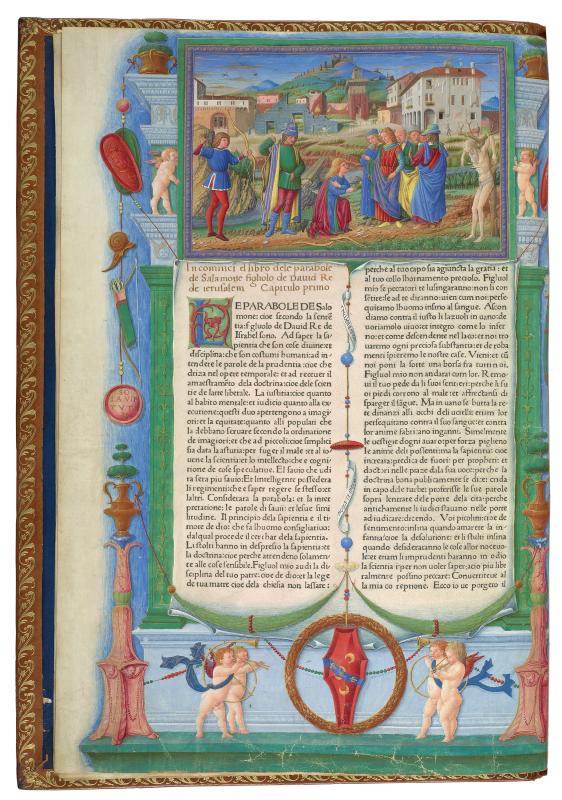 In comincia el libro dele parabole
de Salamone figliolo de Dauid Re
de ierusalem Capitulo primo
LE PARABOLE DE Salo
mone: cioe secondo la senté
tia: figluolo de Dauid Re de
Israhel sono. Ad saper la sa
pientia che son cose diuine: et
disciplina: che son costumi humani: ad in
tendere le parole de la prudentia: cioe che
driza nel opere temporale: et ad receuer il
amaestraméto dela doctrina: cioe dele scien
tie de larte liberale. La iustitia: cioe quanto
al habito mentale: et iudicio quanto alla exe
cutione: questi duo apertengono a imagi
ori: et la equitate: quanto alli populari che
la debbano seruare secondo la ordinatione
de imagiori: et che ad piccoli: cioe simplici
sia data la astutia: per fugir il male: et al io
uene la scientia: et lo intellecto: cioe e cogni
tione de cose speculatiue. El sauio che udi
ra sera piu sauio: Et lintelligente possedera
li regimenti: che e saper regere se stesso: et
laltri. Considerara la parabola: et la inter
pretatione: le parole di sauii: et le sue simi
litudine. Il principio dela sapientia e il ti
more de dio: che fa lhuomo consigliatiuo:
dal qual procede il cerchar dela sapientia.
Li stolti hanno in despresio la sapientia: et
la doctrina: cioe perche attendeno solamen
te alle cose sensibile. Figluol mio audi la di
sciplina del tuo patre: cioe de dio: et la lege
de tua matre cioe dela chiesia non lassare:
perche al tuo capo sia agiuncta la gratia: et
al tuo collo lhornamento precioso. Figluol
mio se peccatori te lusingaranno: non li con
sétire: se ad te diranno: uien cum noi: perse
quitamo lhuomo insino al sangue. Ascon
diamo contra il iusto li lazuoli in uano: de
uoriamolo uiuo: et integro come lo infer
no: et come descendente nel laco: et noi tro
uaremo ogni preciosa substantia: et de oba
menti spierremo le nostre case. Vieni: et cú
noi poni la sorte una borsa fra tutti noi.
Figluol mio non andarai cum lor. Remo
ui il tuo pede da li suoi sentieri: perche li su
oi piedi correno al male: et affrectansi de
sparger il sague. Ma in uano se butta la re
te dinanzi alli occhi deli ucielli: etiam lor
persequitano contra il suo sangue: et contra
lor anime fabricano inganni. Simelmente
le uestige dogni auaro: per forza pigliono
le anime deli possenti: ma la sapientia: cioe
increata: predica de fuori: per propheti: et
doctori: nelle piaze da la sua uoce: perche la
doctrina bona publicamente si dice: crida
in capo dele turbe: proferisse le sue parole
sopra lentrate dele porte dela cita: perche
anticamente li iudici stauano nelle porte
ad iudicare: dicendo. Voi picolini: cioe de
sentimento: insina quando amarete la in
fantia: cioe la desolatione: et li stulti insina
quando desideraranno le cose allor nociue
le: et etiam li imprudenti haranno in odio
la scientia: per non uoler saper: acio piu libe
ralmente possino peccare: Conuertitiue al
la mia coreptione. Ecco io ue porgero il